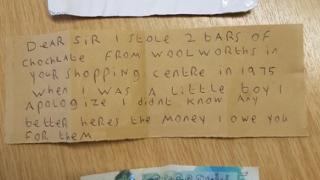 DEAR SIR I STOLE 2 BARS OF
CHOCHLATE FROM WOOLWORTHS in
your shopping centre in 1975
when I was A LITTLE boy I
Apologize I didnt know Any
better heres the money I owe you
FOR them